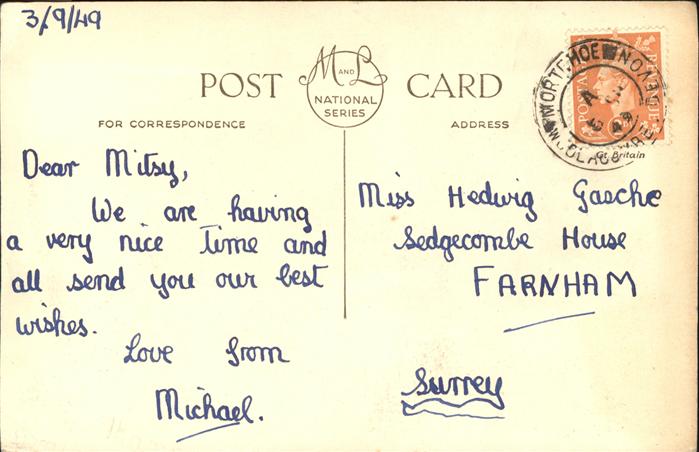 3/9/49
POST CARD
M AND L
NATIONAL
SERIES
FOR CORRESPONDENCE
ADDRESS
MORTEHOE
DEVON
POSTAGE
REVENUE
Gt. Britain
Dear Mitsy,
We are having
a very nice time and
all send you our best
wishes.
Love from
Michael.
Miss Hedwig Gasche
Sedgecombe House
FARNHAM
Surrey